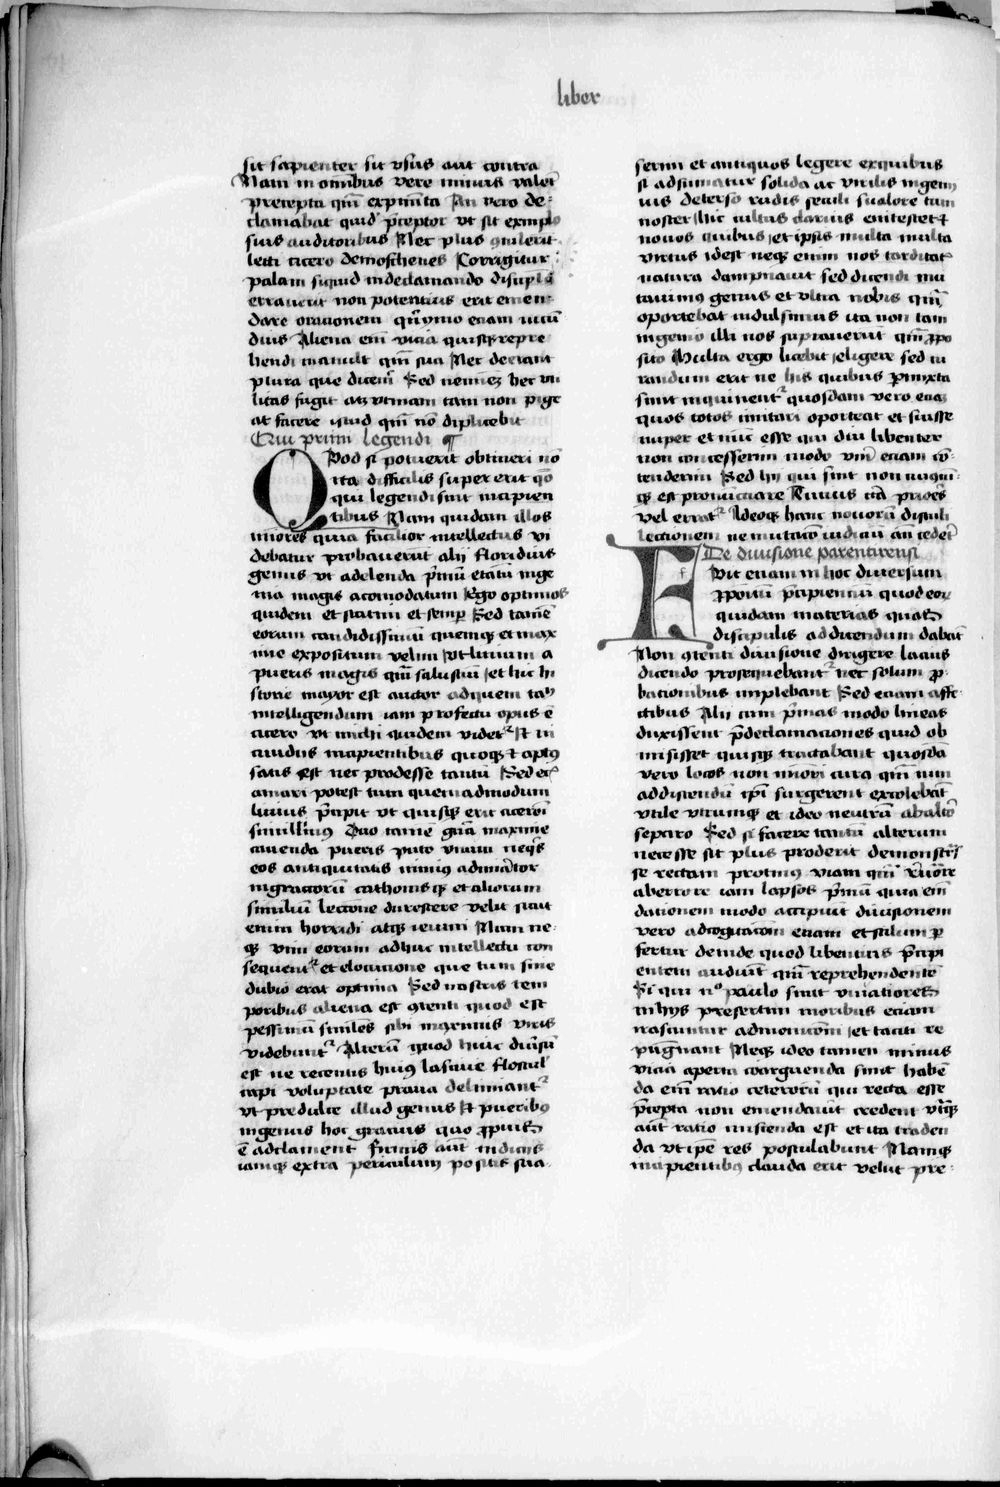 liber
sit sapienter sit usus aut contra
Nam in omībus vere minus valēt
precepta qm̄ exptm̄ta An vero de-
clamabat quid p̄ceptor ut sit exemplo
suis auditoribus Nec plus ꝯtulerit
lecti cicero demosthenes Corrigitur
palam siquid in declamando disuplī
erraverit non potentius erit emen
dare orationem qm̄ymo eciam iucū
dius Aliena em̄ vicia quisqꝫ repre
hendi mauult qm̄ sua Nec deerant
plura que dicem̄ Sed neminē hec uti
litas fugit atqꝫ utinam tam non pige
at facere istud qm̄ nō displicebit
Qui primi legendi
Qvod si potuerit obtineri nō
ita difficilis super erit qō
qui legendi sint incipien
tibus Nam quidam illos
miores quia facilior intellectus vi
debatur probauerunt alij floridius
genus ut ad alenda p̄mū etatū inge
nia magis acomodatum Ego optimos
quidem et statim et semp̄ Sed tamē
eorum candidissimū quemqꝫ et max
ime expositum velim Ut liuium a
pueris magis qm̄ salustiū et hic hi
storie mayor est auctor ad quem tam̄
intelligendum iam profectu opus ē
cicero ut michi quidem videtʳ et iu
cundus incipientibus quoqꝫ et aptꝰ
satis est nec prodesse tantū Sed eci
amari potest tum quemadmodum
liuius p̄cipit ut quisqꝫ erit ciceroī
simillimꝰ Duo tamē gn̄a maxime
cauenda pueris puto vnum neqꝫ
eos antiquitatis nimiꝰ admirator
ingraccorū cathonisqꝫ et aliorum
similiū lectione durescere velit sicut
enim horridi atqꝫ ieiuni Nam ne-
qꝫ vim eorum adhuc intellectu con
sequentʳ et elocucione que tum sine
dubio erat optima Sed nostris tem
poribus aliena est ꝯtenti quod est
pessimū similes sibi magnius viris
videbuntʳ Alterū quod huic diūsū
est ne recentis huiꝰ lasciue flosculī
capi voluptate praua deliniantʳ
ut predulce illud genus et pueribꝰ
ingeniis hoc gracius quo ꝓpius
ē adclament firmis aūt iudiciis
iamqꝫ extra periculum positis sua-
serim et antiquos legere ex quibus
si adsumatur solida ac virilis ingenij
uis deterso rudis seculi sqalore tum
noster hic cultus clarius enitescet
nouos quibus et ipsis multa multa
virtus idest neqꝫ enim nos tarditatꝭ
natura dampnauit sed dicendi mu
tauimꝰ genus et ultra nobis qm̄
oportebat indulsimus ita non tam
ingenio illi nos supauerūt qm̄ ꝓpo
sito Multa ergo licebit eligere sed cu
randum erit ne his quibus p̄mixta
sunt inquinentʳ quosdam vero eciā
quos totos imitari oporteat et fuisse
nuper et nūc esse qui diu libenter
non concesserim modo um̄ eciam cō-
tenderim Sed hij qui sint non cuiqui-
qꝫ est pronūciare Tutius circa priores
vel erratʳ Ideoqꝫ hanc nouorū distuli
lectionem ne imitacō iudiciū an̄ cederꝭ
De diuisione parentirensi
Fvit eciam in hoc diuersum
ꝓpositū p̄cipientiū quod eorꝫ
quidam materias quas
discipulis ad dicendum dabāt
Non ꝯtenti diuisione dirigere lacius
dicendo prosequebantʳ nec solum ꝓ-
bacionibus implebant Sed eciam affe-
ctibus Alij cum p̄mas modo lineas
duxissent p̄ declamaciones quid ob
misisset quisqꝫ tractabant quosdā
vero locos non miori cura qm̄ cum
ad dicendū ip̄i surgerent excolebāt
Vtile vtrumqꝫ et ideo neutrū ab altō
separo Sed si facere tantū alterum
necesse sit plus proderit demonstrās
se rectam protinus viam qm̄ reuocare
ab errore iam lapsos p̄mū quia em̄
dationem modo accipiūt diuisionem
vero ad cogitacōem eciam et stilum p̄
fertur deinde quod libentius p̄cipi
entem audiūt qm̄ reprehendentē
Si qui ṽo paulo sunt viuatiores
in hijs presertim moribus eciam
irascuntur admonicōni et taciti re
pugnant Neqꝫ ideo tamen minus
vicia aperta coarguenda sunt habē
da em̄ ratio ceterorū qui recta esse
p̄cepta non emendauit credent vtqꝫ
aūt ratio miscenda est et ita traden
da vt ipē res postulabunt Namqꝫ
incipientibꝰ danda erit velut pre-